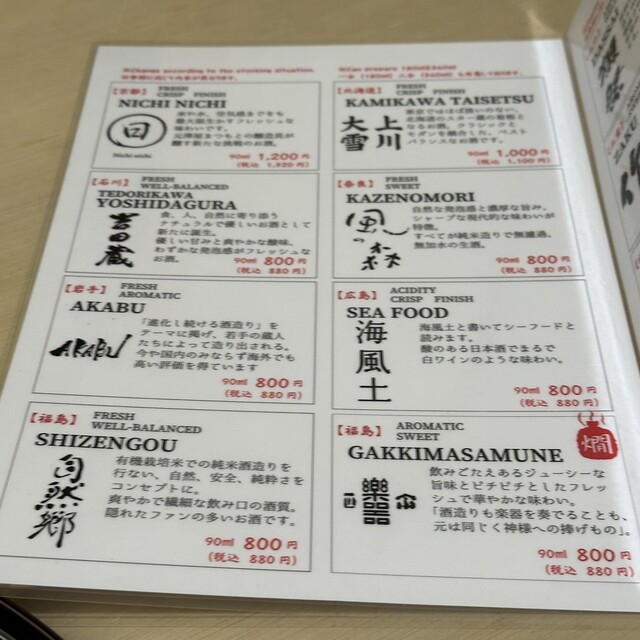 ※Change according to the stocking situation.
※Can prepare 180ml&360ml
【京都】
FRESH
CRISP FINISH
NICHI NICHI
日
Nichi nichi
米や水、空気感までをも
最大限生かすフレッシュな
味わいです。
元澤屋まつもとの醸造長が
醸す新たな挑戦のお酒。
90ml 1,200円
(税込 1,320円)
【石川】
FRESH
WELL-BALANCED
TEDORIKAWA
YOSHIDAGURA
吉田蔵
食、人、自然に寄り添う
ナチュラルで優しいお酒として
新たに誕生。
優しい甘みと爽やかな酸味、
わずかな発泡感がフレッシュな
お酒。
90ml 800円
(税込 880円)
【岩手】
FRESH
AROMATIC
AKABU
AKABU
「進化し続ける酒造り」を
テーマに掲げ、若手の蔵人
たちによって造り出される。
今や国内のみならず海外でも
高い評価を得ています
90ml 800円
(税込 880円)
【福島】
FRESH
WELL-BALANCED
SHIZENGOU
自然郷
有機栽培米での純米酒造りを
行ない、自然、安全、純粋さを
コンセプトに。
爽やかで繊細な飲み口の酒質。
隠れたファンの多いお酒です。
90ml 800円
(税込 880円)
【北海道】
FRESH
CRISP FINISH
KAMIKAWA TAISETSU
上川
大雪
東京ではほぼ扱いのない、
北海道のスター蔵の看板と
なるお酒。クラシックと
モダンを融合した、ベスト
バランスなお酒です。
90ml 1,000円
(税込 1,100円)
【奈良】
FRESH
SWEET
KAZENOMORI
風の森
自然な発泡感と濃厚な旨み、
シャープな現代的な味わいが
特徴。
すべてが純米造りで無濾過、
無加水の生酒。
90ml 800円
(税込 880円)
【広島】
ACIDITY
CRISP FINISH
SEA FOOD
海風土
海風土と書いてシーフードと
読みます。
酸のある日本酒でまるで
白ワインのような味わい。
90ml 800円
(税込 880円)
【福島】
AROMATIC
SWEET
燗
GAKKIMASAMUNE
樂器
飲みごたえあるジューシーな
旨味とピチピチとしたフレッ
シュで華やかな味わい。
「酒造りも楽器を奏でることも、
元は同じく神様への捧げもの」。
90ml 800円
(税込 880円)